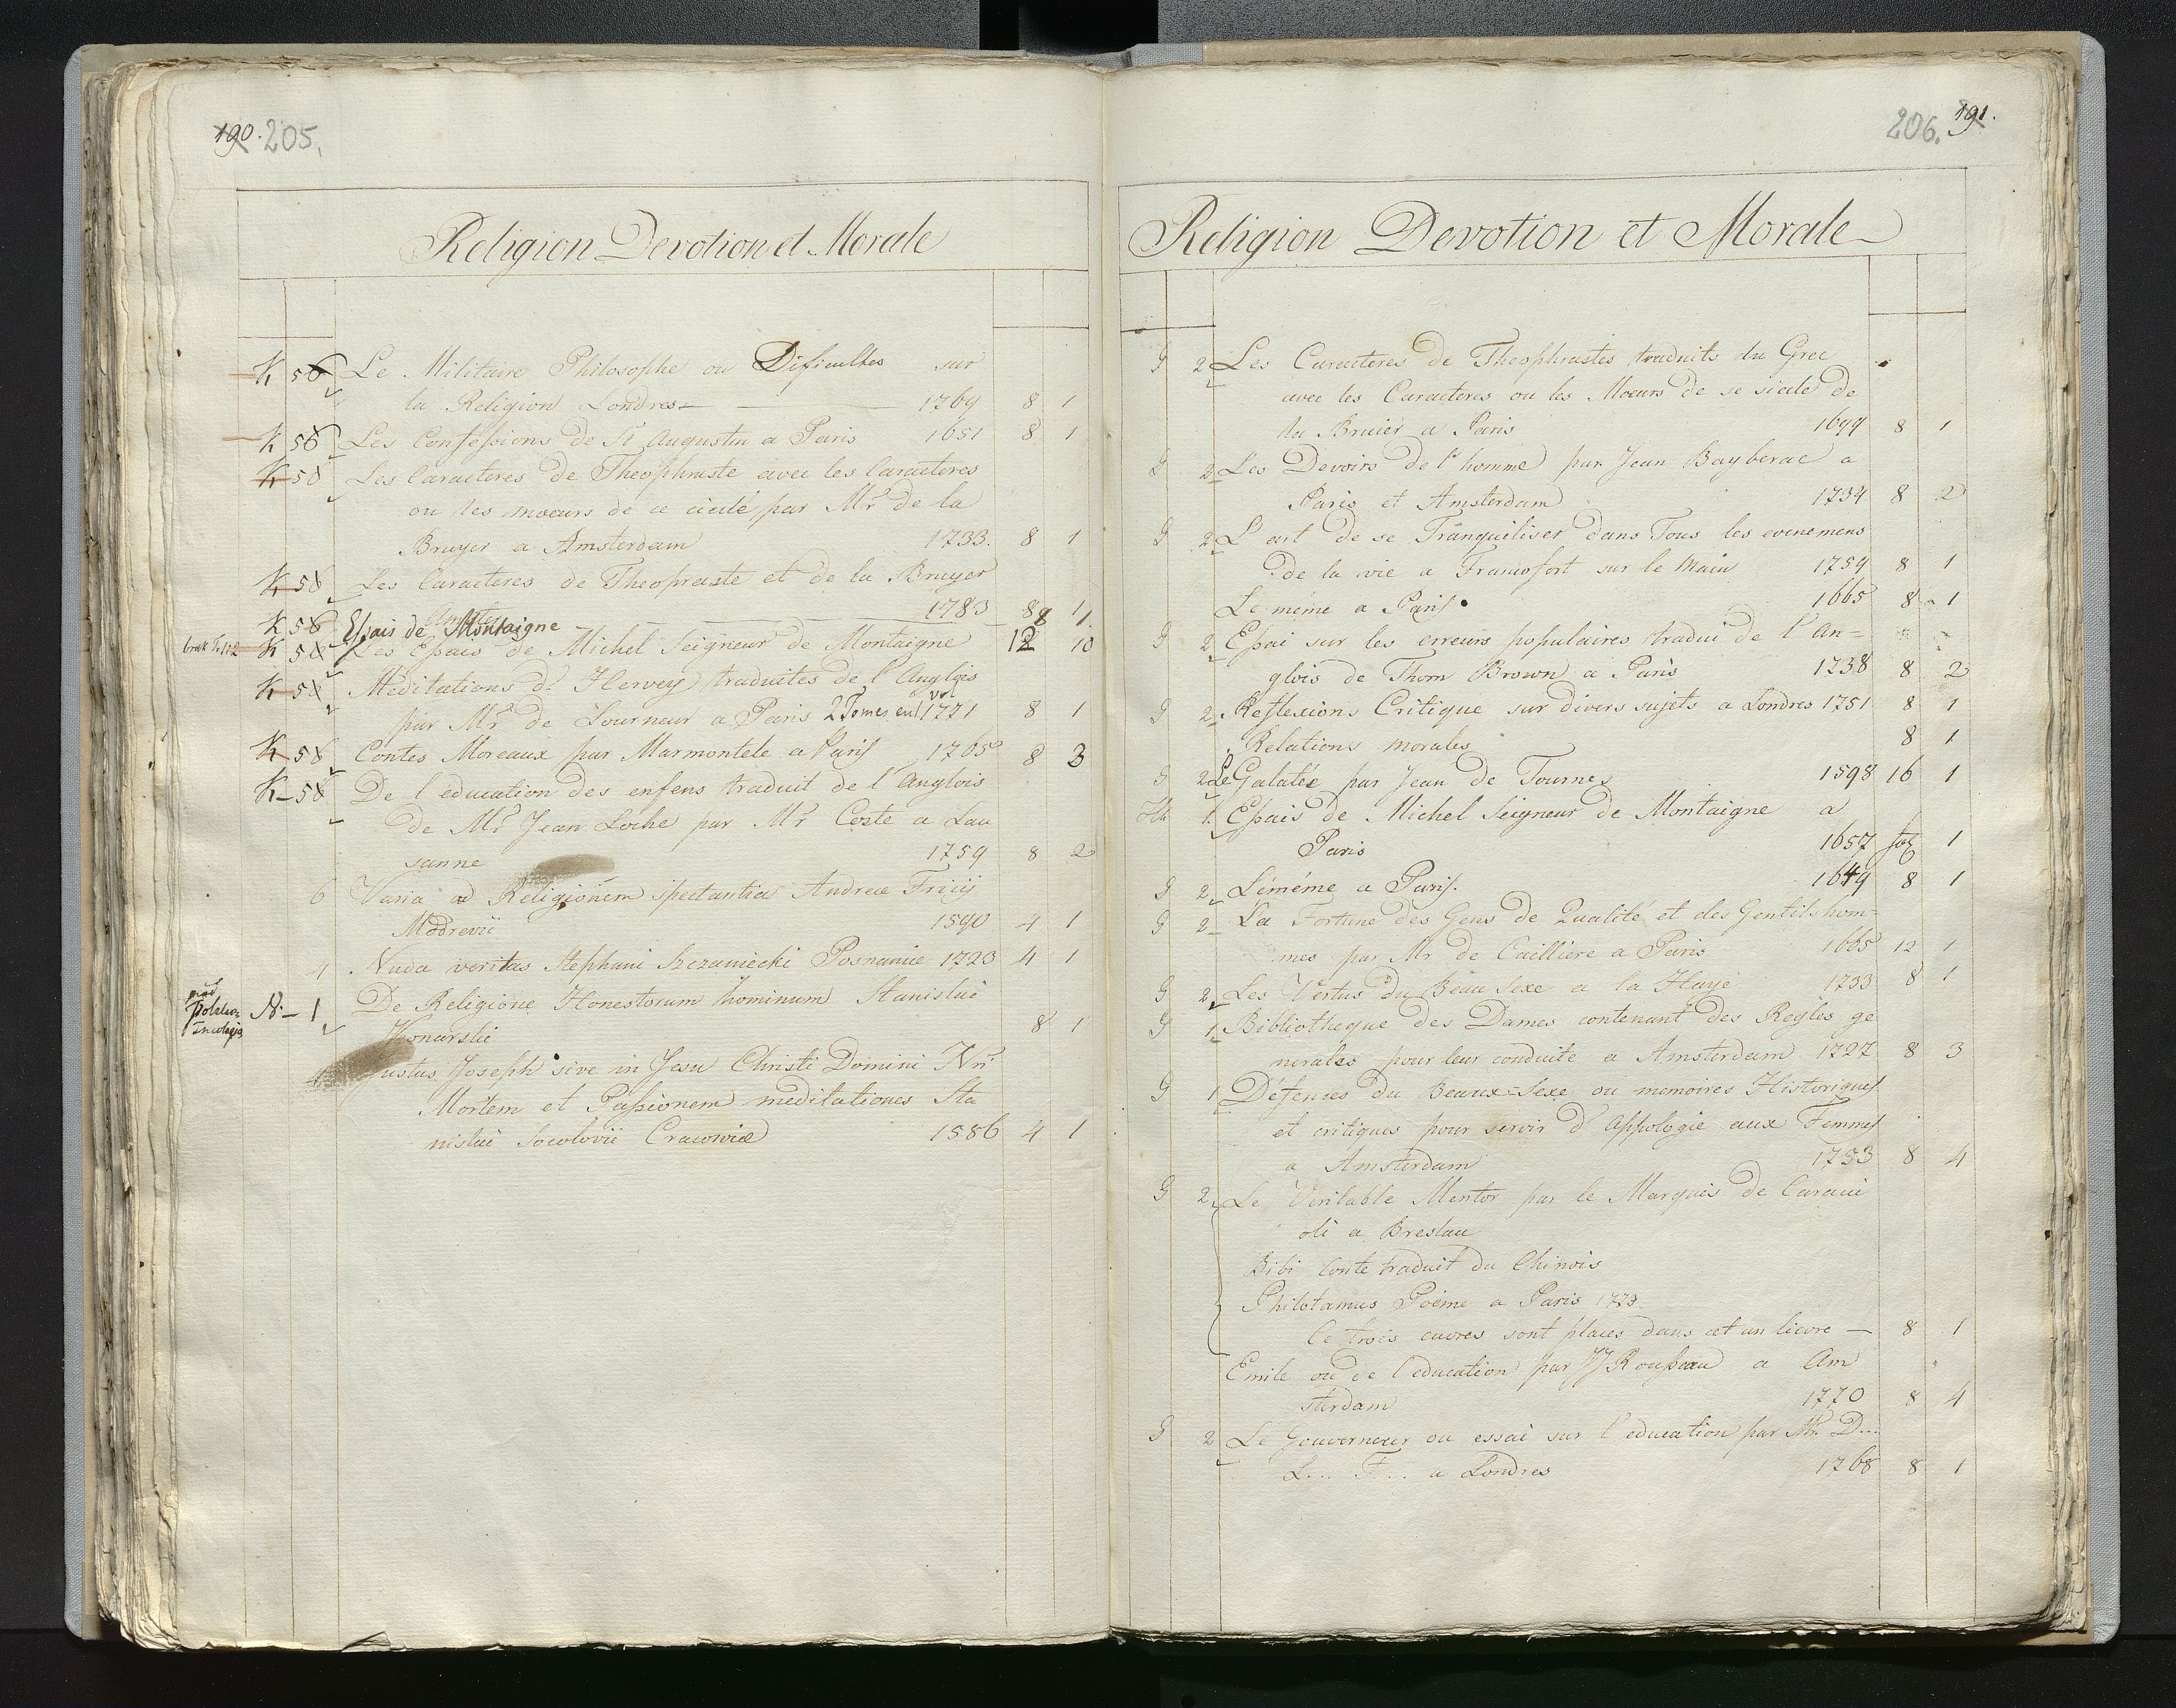 190. 205.
Religion Devotion et Morale
K 56 Le Militaire Philosophe ou Dificultes sur
la Religion Londres 1769 8 1
K 56 Les Confessions de St Augustin a Paris 1651 8 1
K 58 Les Caracteres de Theophraste avec les Caracteres
ou les moeurs de ce ciecle par Mr de la
Bruyer a Amsterdam 1733. 8 1
K 58 Les Caracteres de Theopraste et de la Bruyer
1783 8 1
K 56 Essais de Montaigne 8 1
brak T. 1 12 K 58 Les Essais de Michel Seigneur de Montaigne 12 10
K 58 Meditations d. Hervey traduites de l'Anglois
par Mr de Tourneur a Paris 2 Tomes en 1 vol 1771 8 1
K 58 Contes Moreaux par Marmontele a Paris 1765 8 3
K 58 De l'education des enfens traduit de l'Anglois
de Mr Jean Locke par Mr Coste a Lau
sanne 1759 8 2
6 Varia ad Religionem spectantia Andreæ Fricij
Modrevii 1590 4 1
1 Nuda veritas Stephani Szczaniecki Posnaniæ 1723 4 1
N 1 De Religione Honestorum hominum Stanislai
Konarski 8 1
Justus Joseph sive in Jesu Christi Domini Nri
Mortem et Passionem meditationes Sta
nislai Socolovii Cracoviæ 1586 4 1
206. 191.
Religion Devotion et Morale
G 2 Les Caracteres de Theophrastes traduits du Grec
avec les Caracteres ou les Moeurs de se siecle de
la Bruier a Paris 1699 8 1
G 2 Les Devoirs de l'homme par Jean Bayberac a
Paris et Amsterdam 1734 8 2
G 2 L'art de se Tranquiliser dans Tous les evenemens
de la vie a Francofort sur le Main 1759 8 1
Le méme a Paris 1665 8 1
G 2 Essai sur les erreurs populaires tradui de l'An=
glois de Thom Brown a Paris 1738 8 2
G 2 Reflexions Critique sur divers sujets a Londres 1751 8 1
Relations morales 8 1
G 2 Le Galatée par Jean de Tournes 1598 16 1
Th 1 Essais de Michel Seigneur de Montaigne a
Paris 1657 fol 1
G 2 Léméme a Paris. 1649 8 1
G 2 La Fortune des Gens de Qualité et des Gentilshom=
mes par Mr de Cailliere a Paris 1665 12 1
G 2 Les Vertus du Beau Sexe a la Haye 1733 8 1
G 1 Bibliotheque des Dames contenant des Regles ge
nerales pour leur conduite a Amsterdam 1727 8 3
G 1 Défenses du Beaux=Sexe ou memoires Historiques
et critiques pour servir d'Appologie aux Femmes
a Amsterdam 1753 8 4
G 2 Le Veritable Mentor par le Marquis de Caracci
oli a Breslau
Bibi Conte traduit du Chinois
Philotamus Poëme a Paris 1773
Ce trois euvres sont places dans cet un lievre 8 1
Emile ou de l'education par JJ Rousseau a Am
sterdam 1770 8 4
G 2 Le Gouverneur ou essai sur l'education par Mr. D...
L... F... a Londres 1768 8 1